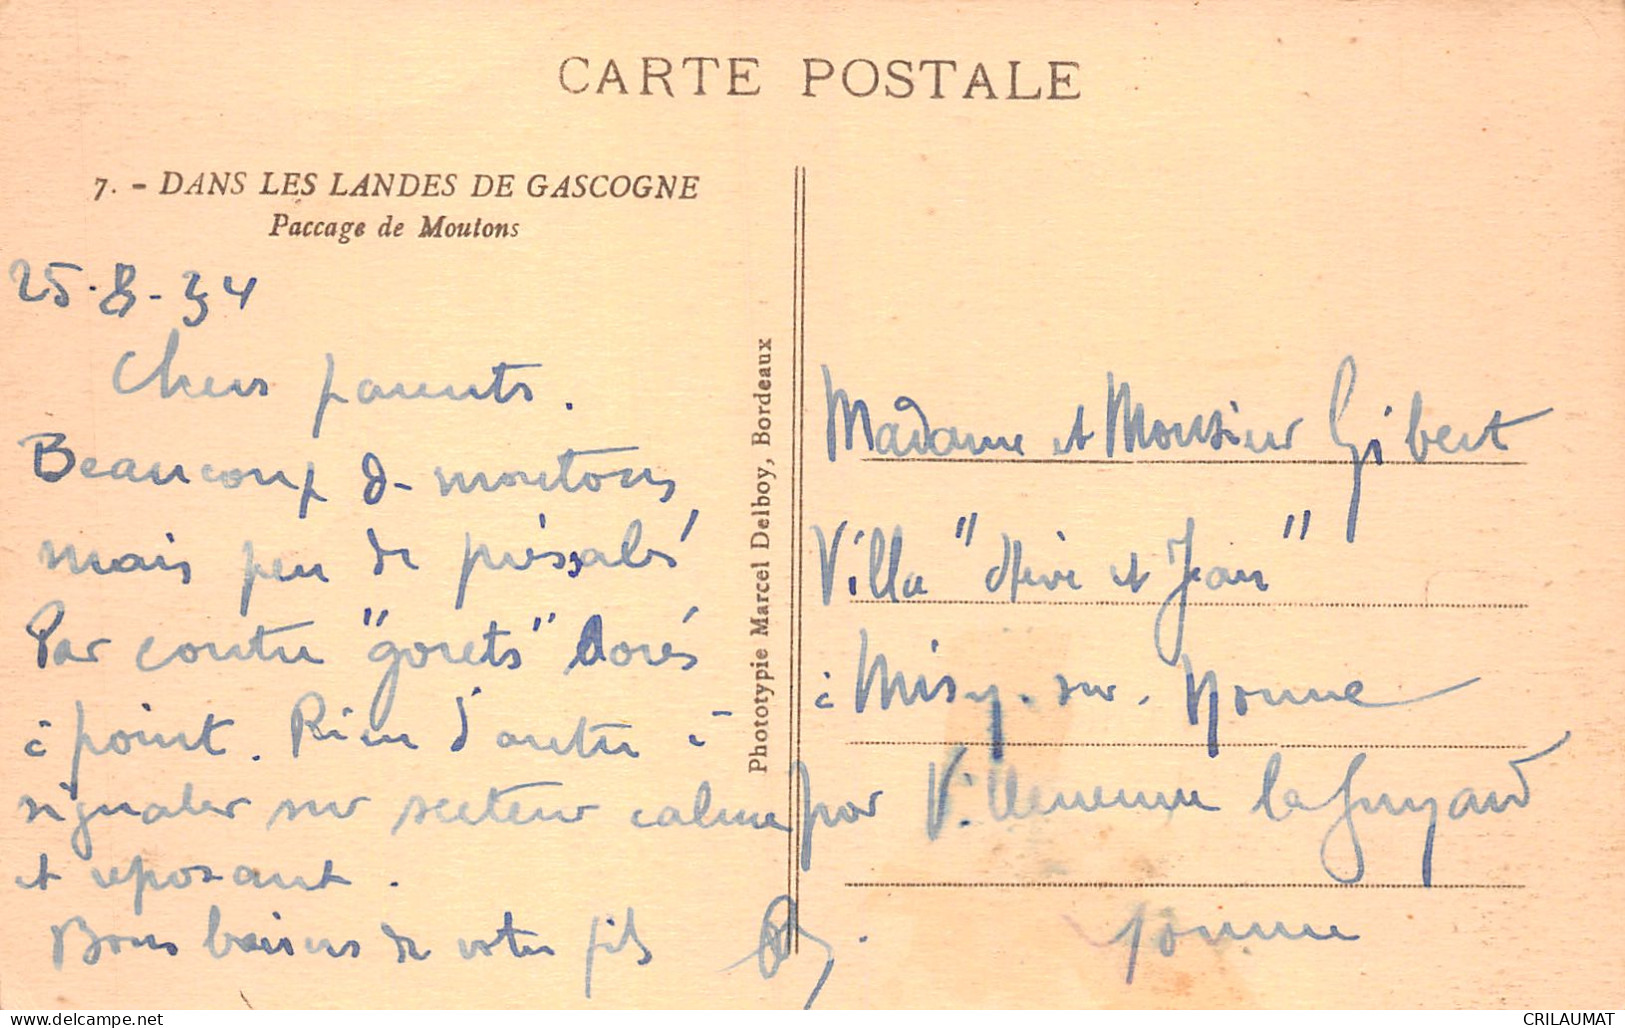 CARTE POSTALE
7. - DANS LES LANDES DE GASCOGNE
Paccage de Moutons
25-8-34
Chers parents.
Beaucoup de moutons,
mais peu de présalés
Par contre "gorets" dorés
à point. Rien d'autre à
signaler sur secteur calme
et reposant.
Bons baisers de votre fils
Phototypie Marcel Delboy, Bordeaux
Madame et Monsieur Gibert
Villa " et Jean"
à Misy-sur-Yonne
par Villeneuve la Guyard
Yonne
delcampe.net
CRILAUMAT